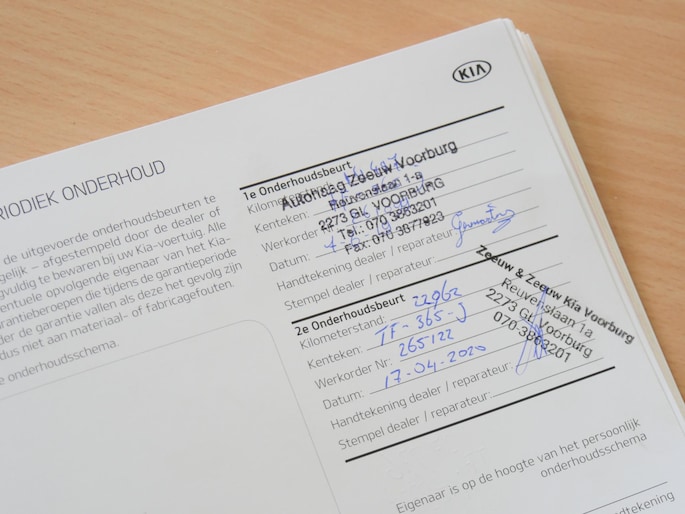 KIA
RIODIEK ONDERHOUD
de uitgevoerde onderhoudsbeurten te
gelijk – afgestempeld door de dealer of
gvuldig te bewaren bij uw Kia-voertuig. Alle
entuele opvolgende eigenaar van het Kia-
arantieberoepen die tijdens de garantieperiode
der de garantie vallen als deze het gevolg zijn
dus niet aan materiaal- of fabricagefouten.
e onderhoudsschema.
1e Onderhoudsbeurt
Autohaag Zeeuw Voorburg
Reuvenslaan 1-a
2273 GL VOORBURG
Tel.: 070 3863201
Fax: 070 3877923
Kenteken:
Werkorder
Datum:
Handtekening dealer / reparateur:
Stempel dealer / reparateur:
Zeeuw & Zeeuw Kia Voorburg
Reuvenslaan 1a,
2273 GL Voorburg
070-3863201
2e Onderhoudsbeurt
Kilometerstand: 22962
Kenteken: TF-365-J
Werkorder Nr: 265122
Datum: 17-04-2020
Handtekening dealer / reparateur:
Stempel dealer / reparateur:
Eigenaar is op de hoogte van het persoonlijk
onderhoudsschema
ndtekening